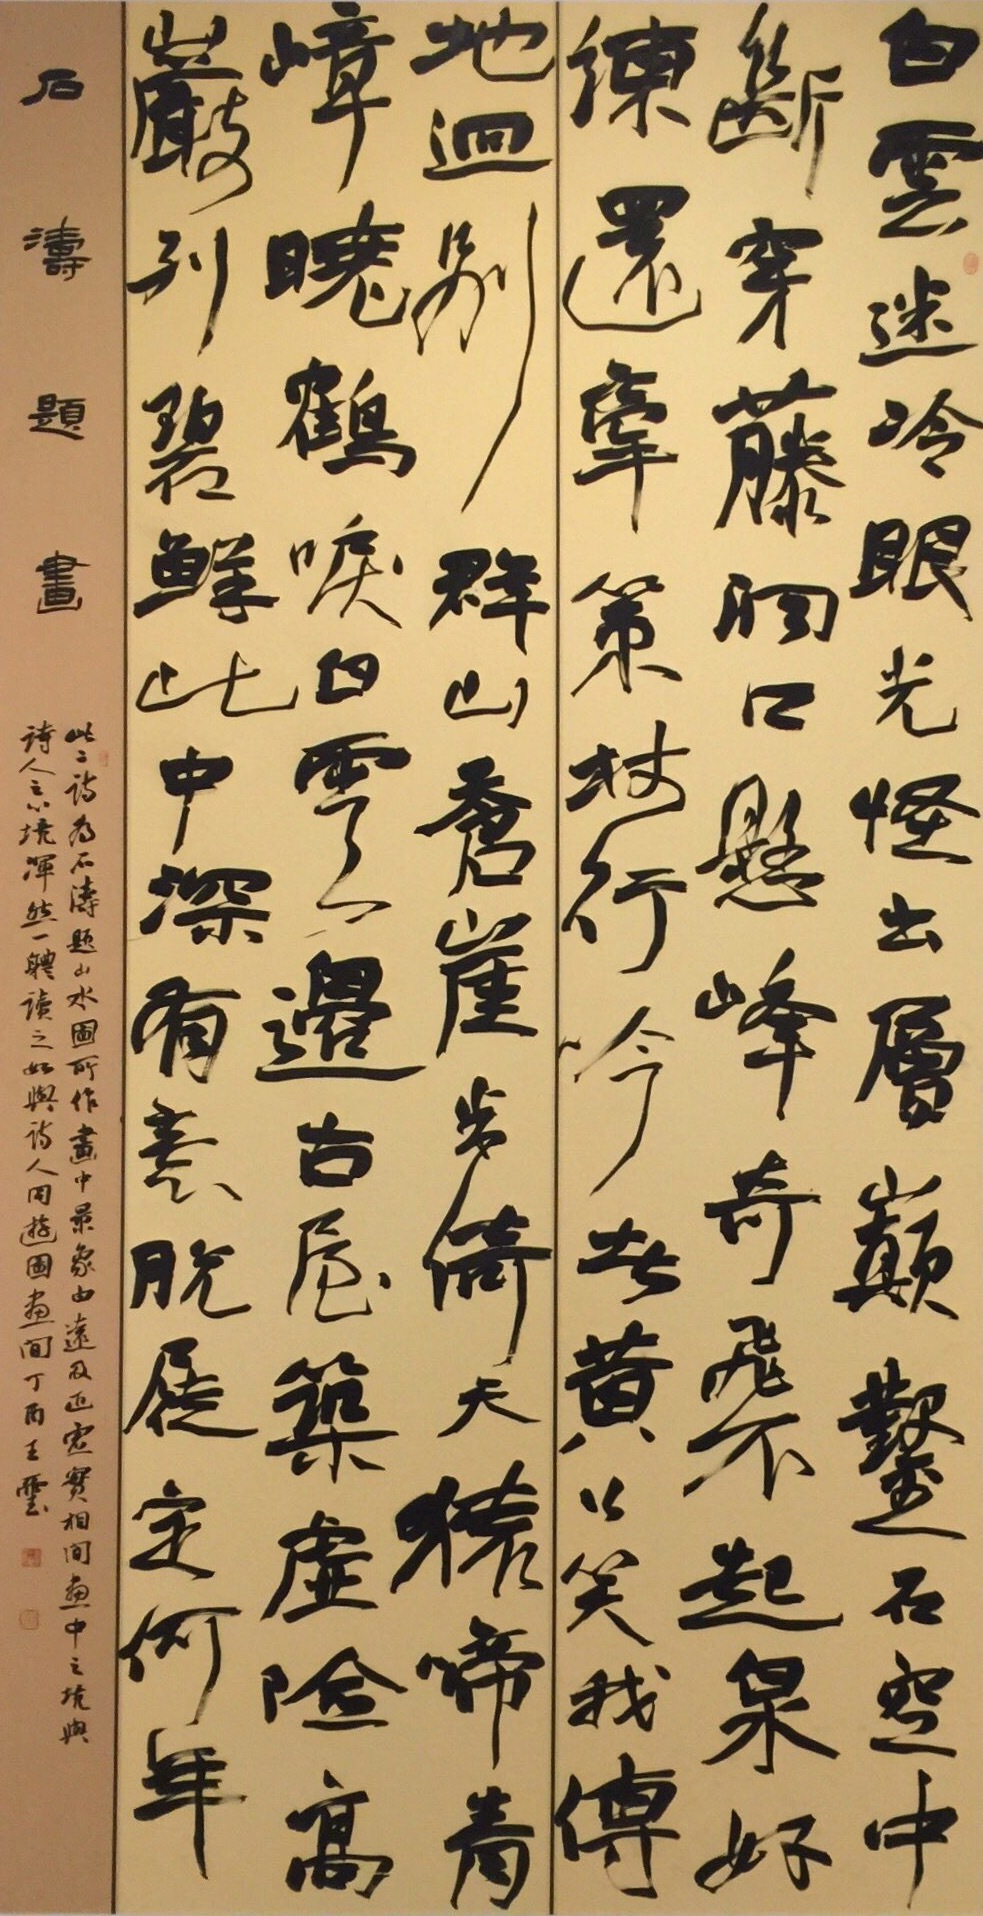 白雲迷冷眼光怪出層巔鑿石空中
斷穿藤洞口懸峰奇飛不起泉好
練還牽策杖行吟者黃公笑我傳
地迴別群山蒼崖步倚天猿啼青
嶂曉鶴唳白雲邊古屋築虛險高
巖列碧鮮此中深有意脫屣定何年
石濤題畫
此二詩為石濤題山水圖所作畫中景象由遠及近虛實相間畫中之境與
詩人之心境渾然一體讀之如與詩人同遊圖畫間丁酉王璽